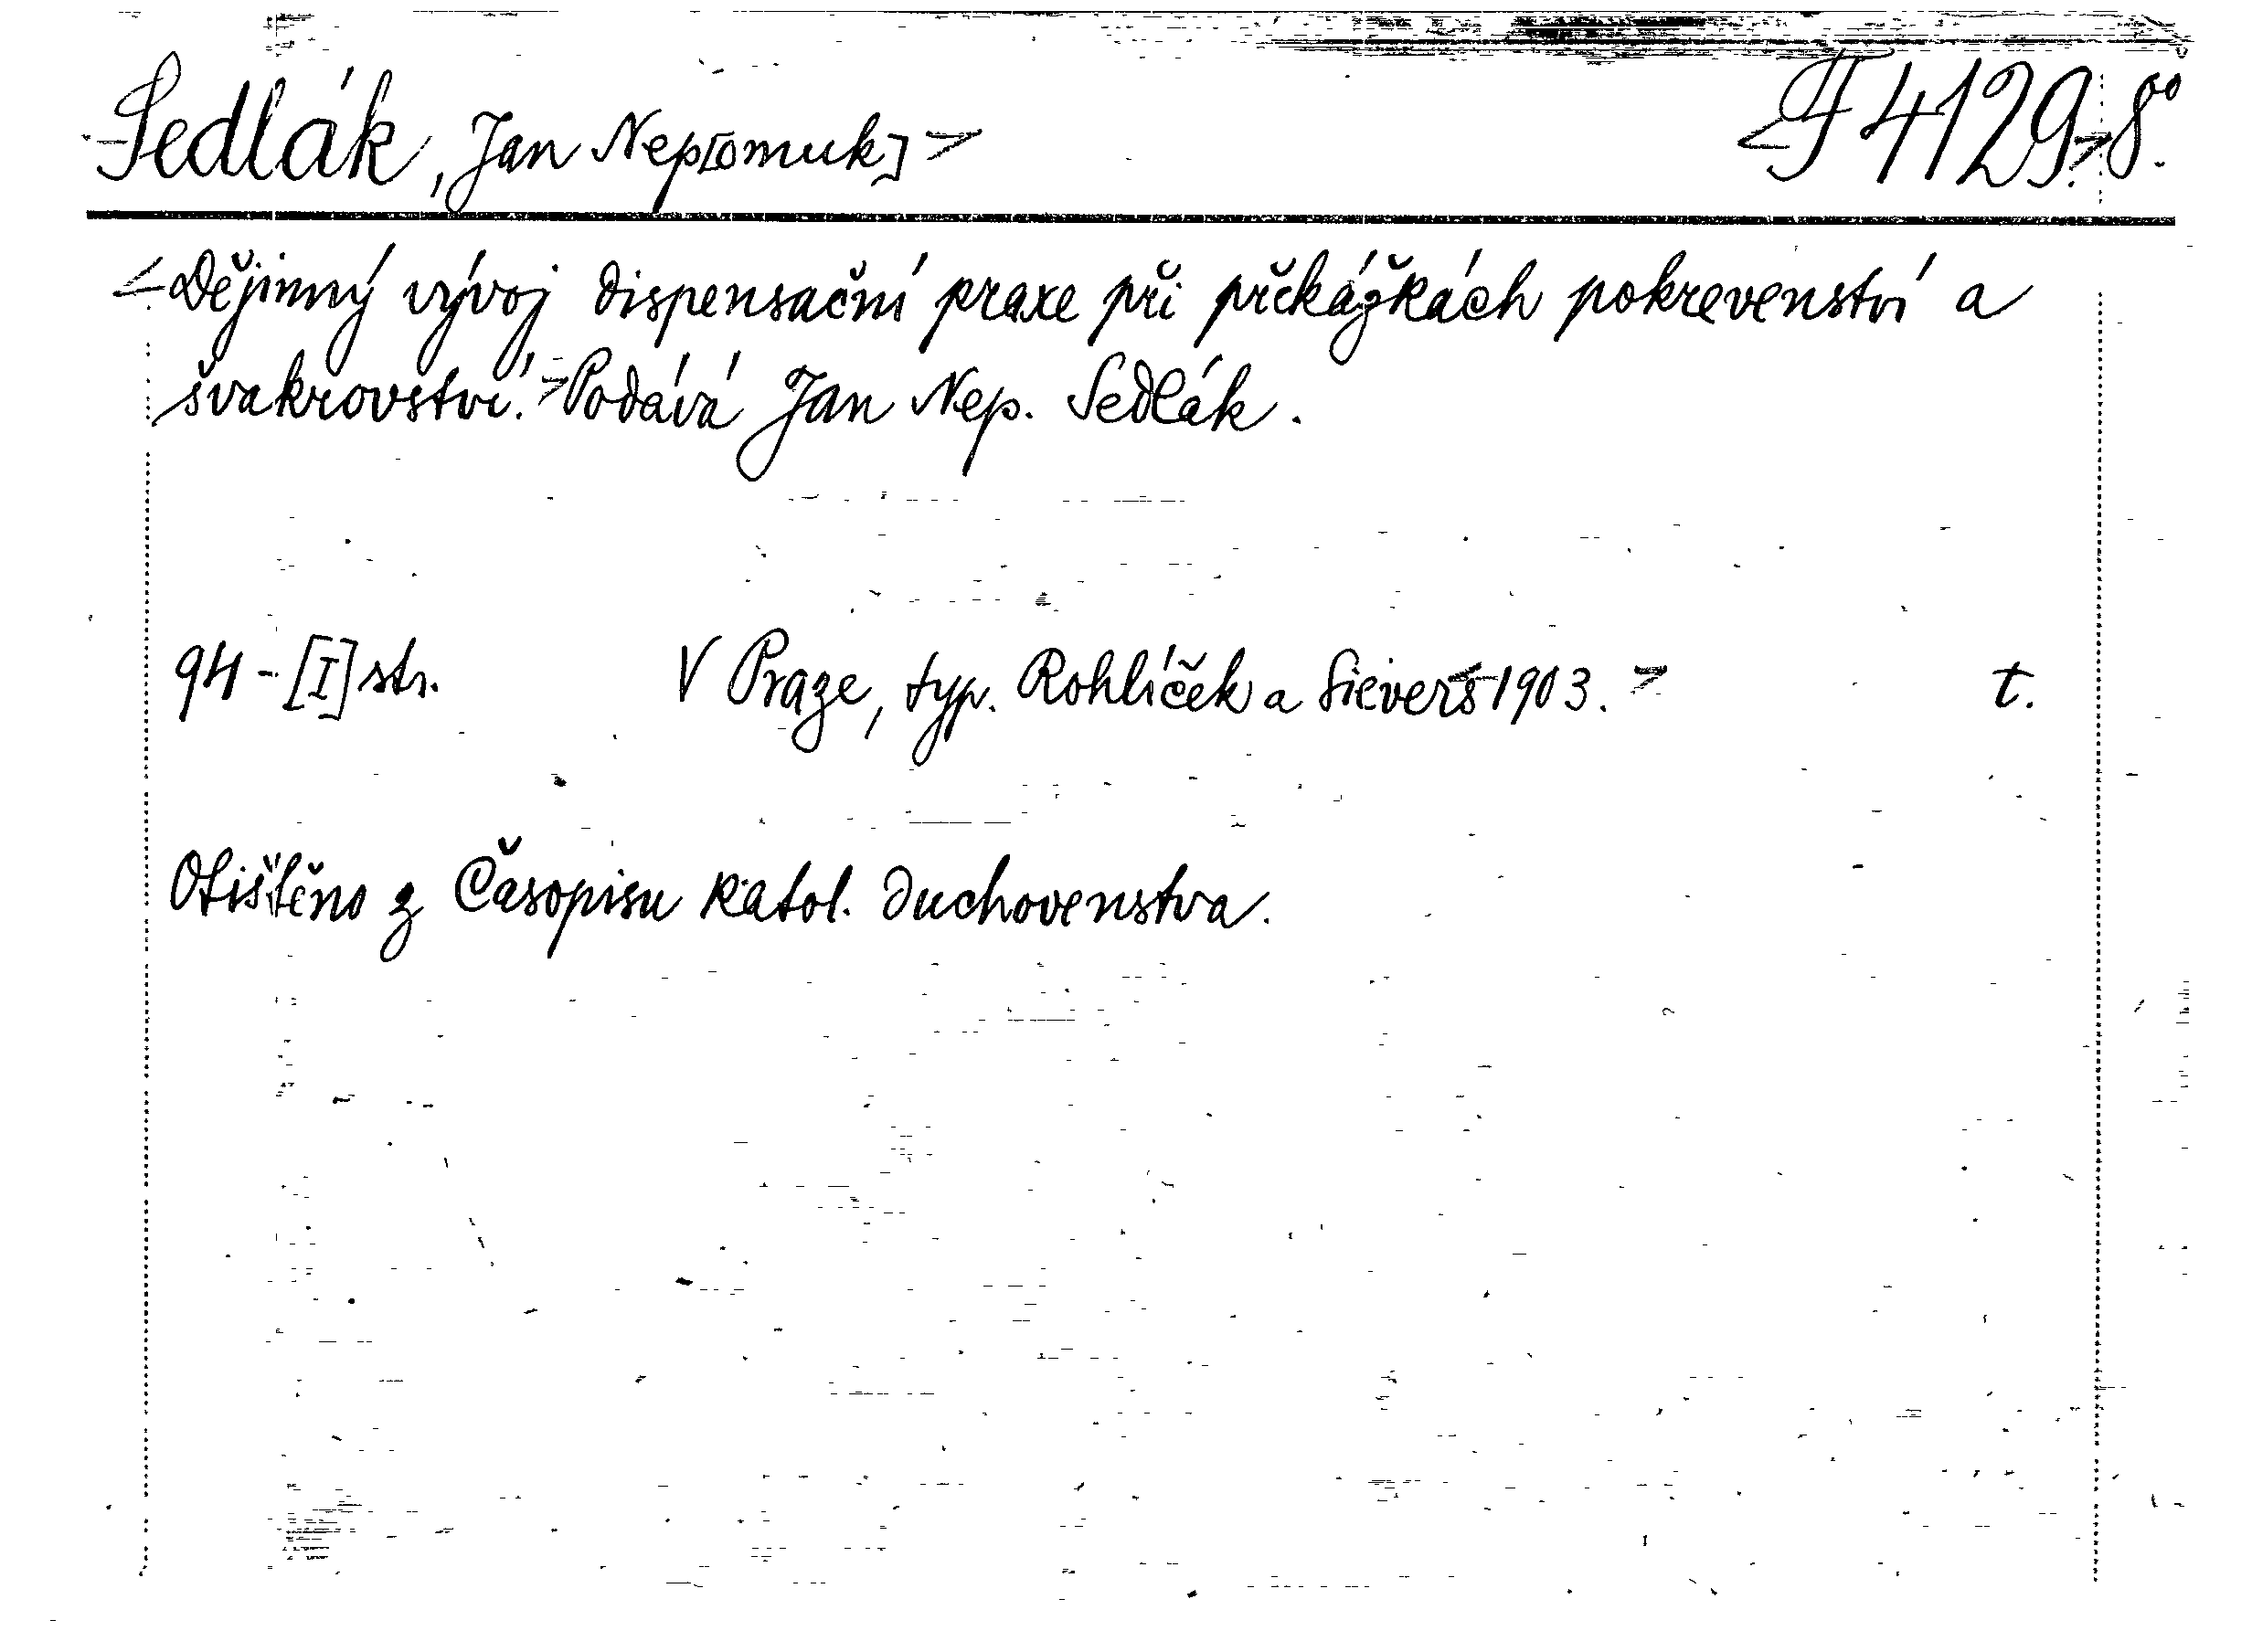 Sedlák, Jan Nep[omuk] > <F 4129.> 8°.
<Dějinný vývoj dispensační praxe při překážkách pokrevenství a
švakrovství.> Podává Jan Nep. Sedlák.
94 - [I] str. V Praze, typ. Rohlíček a Sievers <1903.> t.
Otištěno z Časopisu katol. duchovenstva.